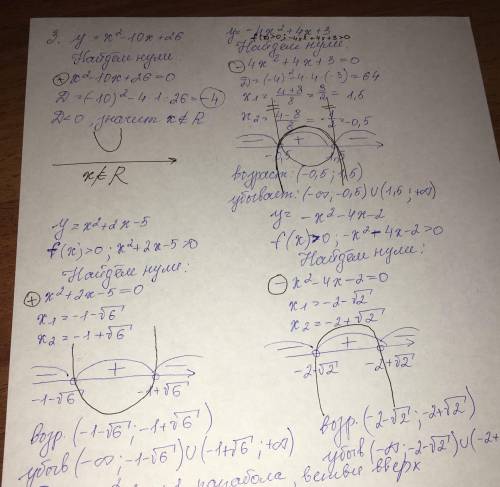 3. y = x² - 10x + 26
Найдем нули
⊕ x² - 10x + 26 = 0
D = (-10)² - 4·1·26 = -4
D < 0, значит x ∉ R
x ∉ R
y = -4x² + 4x + 3
f(x) > 0; -4x² + 4x + 3 > 0
Найдем нули:
⊖ 4x² + 4x + 3 = 0
D = (-4)² - 4·4·(-3) = 64
x₁ = (4+8)/8 = 3/2 = 1,5
x₂ = (4-8)/8 = -1/2 = -0,5
+
-0,5 1,5
возраст: (-0,5; 1,5)
убывает: (-∞; -0,5) ∪ (1,5; +∞)
y = x² + 2x - 5
f(x) > 0; x² + 2x - 5 > 0
Найдем нули:
⊕ x² + 2x - 5 = 0
x₁ = -1-√6
x₂ = -1+√6
+
-1-√6 -1+√6
возр. (-1-√6; -1+√6)
убыв (-∞; -1-√6) ∪ (-1+√6; +∞)
y = -x² - 4x - 2
f(x) > 0; -x² - 4x - 2 > 0
Найдем нули:
⊖ x² - 4x - 2 = 0
x₁ = -2-√2
x₂ = -2+√2
+
-2-√2 -2+√2
возр. (-2-√2; -2+√2)
убыв (-∞; -2-√2) ∪ (-2+
парабола, ветви вверх